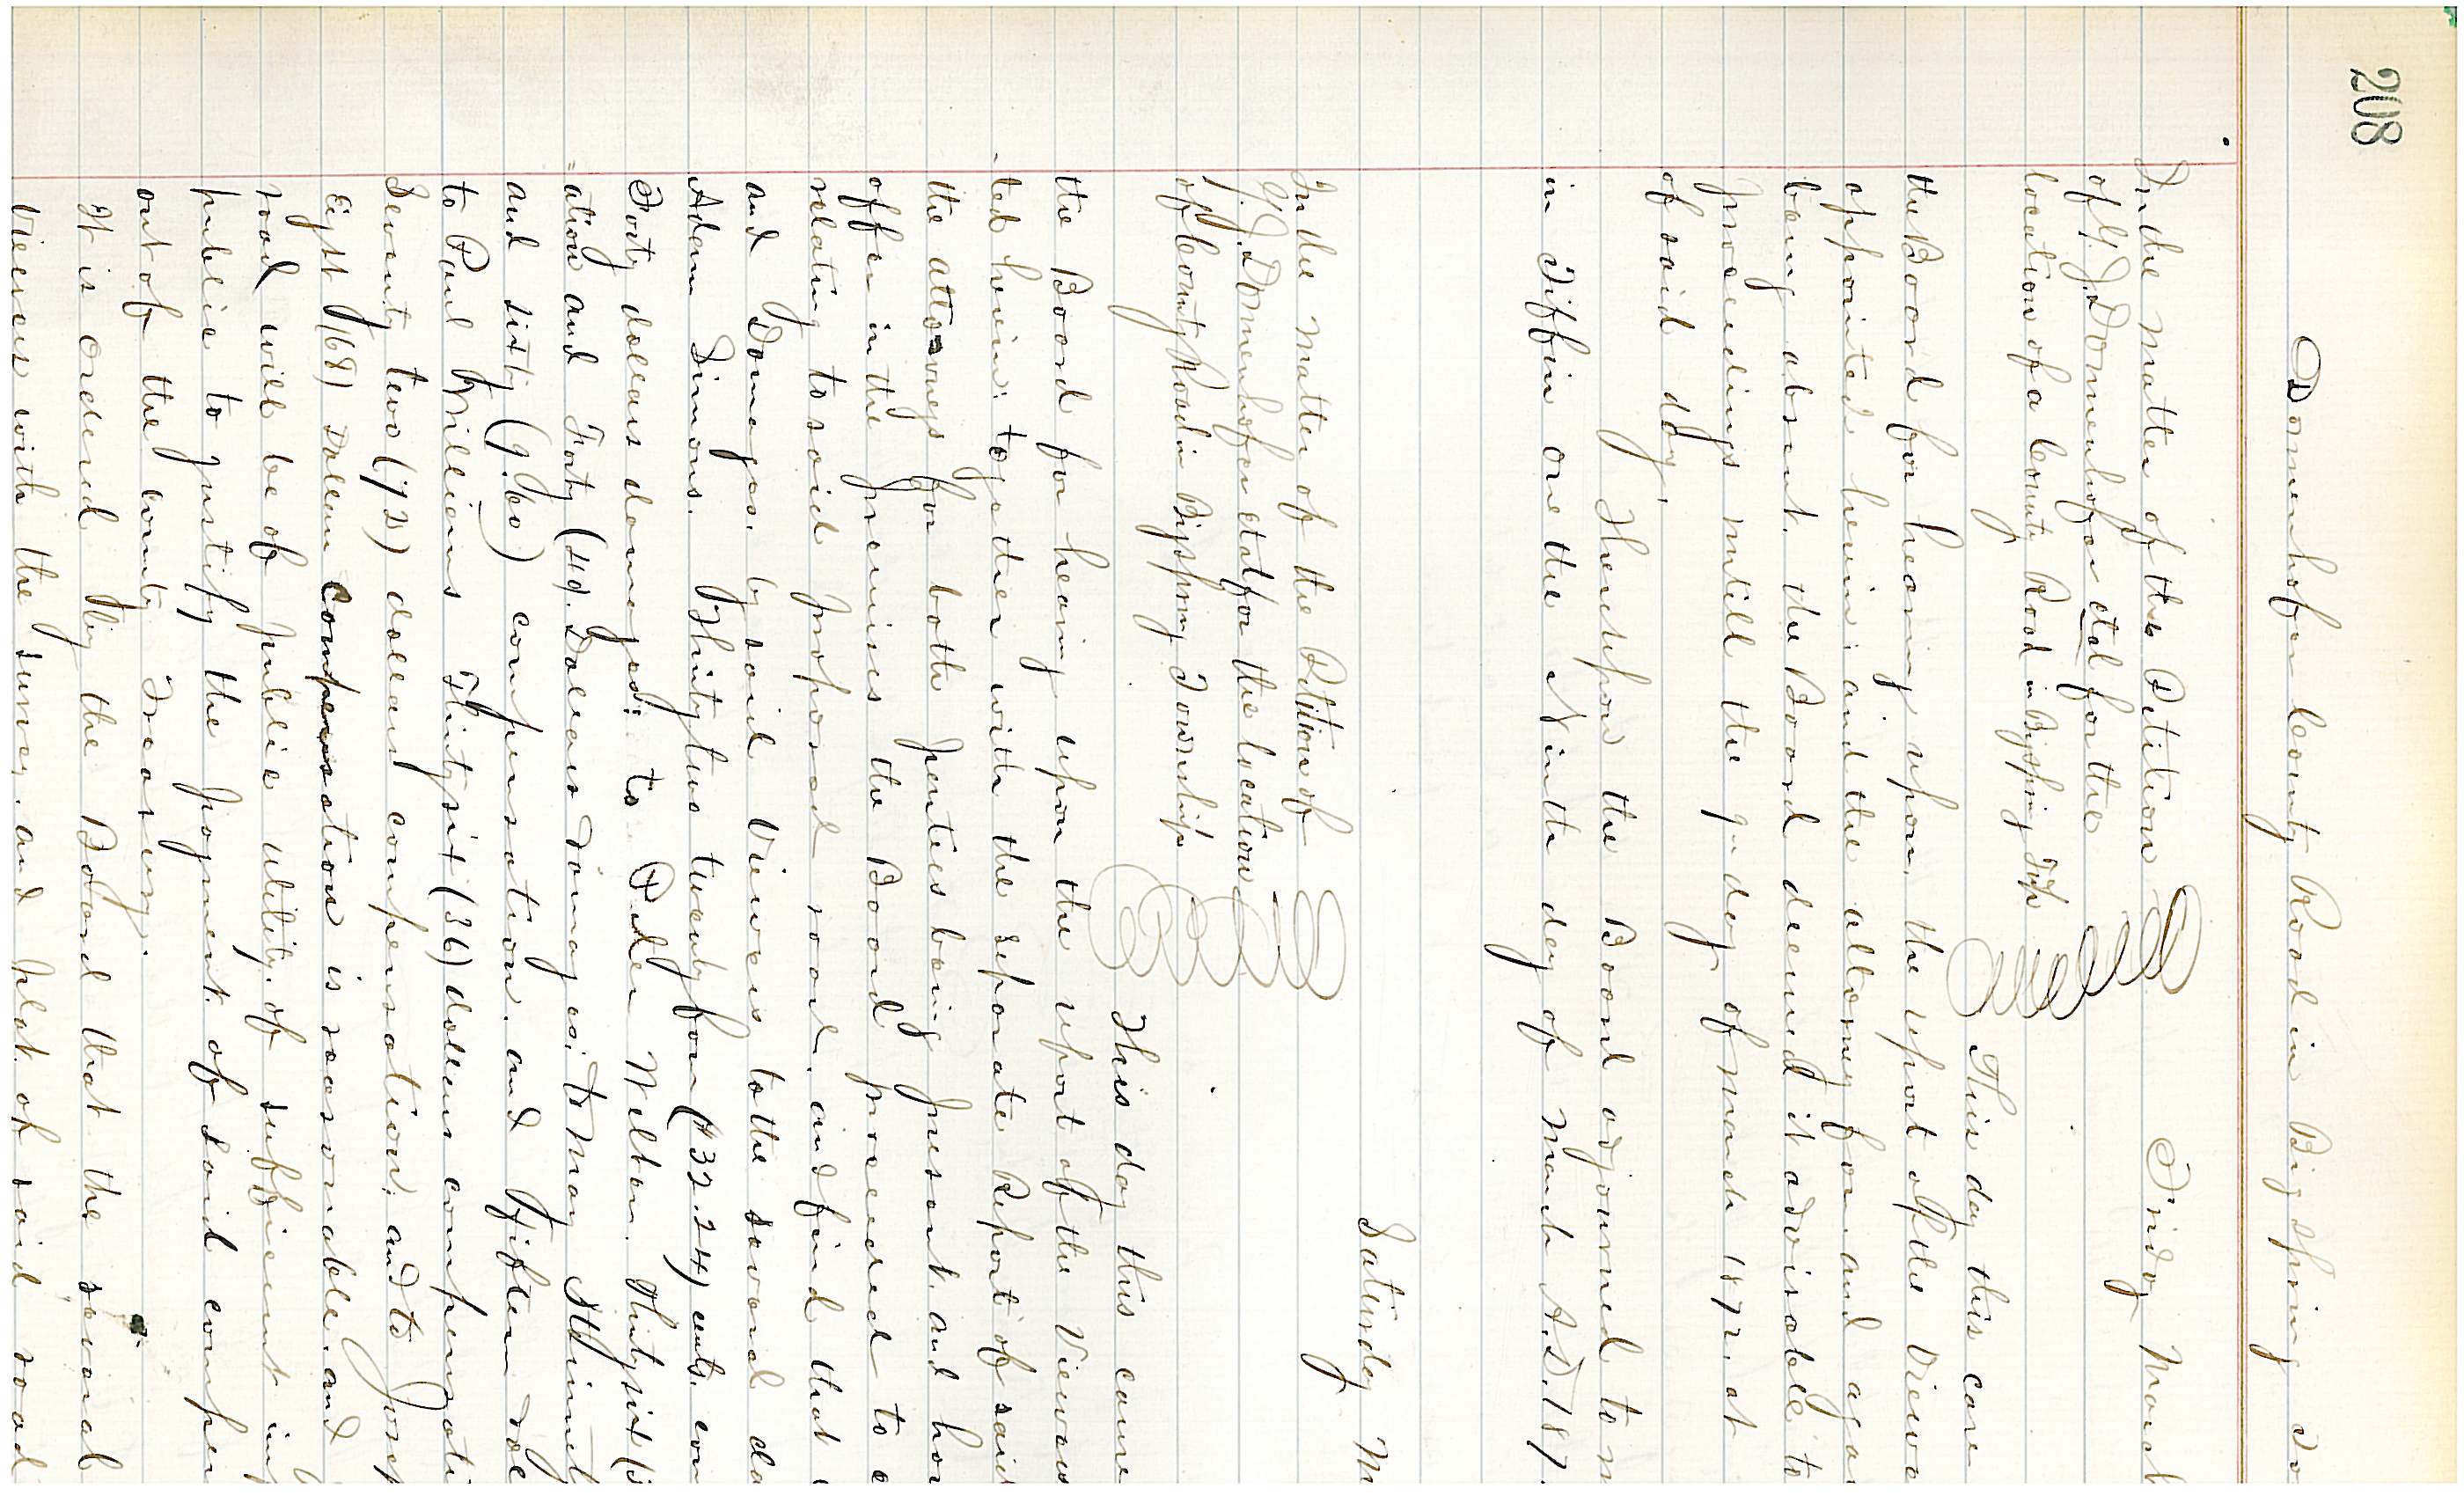 208
Dornenhofer County Road in Big Spring To
Friday March
In the matter of the Petition
of G. J. Dornenhofer etal for the
location of a County Road in Big Spring Twp
This day this case
the Board for hearing upon the report of the Viewe
appointed herein; and the attorney for and aga
being absent. the Board deemed it advisable to
proceedings untill the 9th day of march 1872. at
of said day.
Thereupon the Board adjourned to m
in Tiffin on the Ninth day of March A.D. 187
Saturday M
In the matter of the Petition of
G. J. Dornenhofer etal for the location
of County Road in Big Spring Township
This day this came
the Board for hearing upon the report of the Viewers
ted herein: together with the separate Report of said
the attorneys for both parties being present. and hav
offer in the premises the Board proceeded to e
relating to said proposed road. and find that
and Damages. by said Viewers to the several da
Adam Simons. Thirty two twenty four ($32.24) cents. com
Forty dollars damages: to Peter Welter. Thirty six (3
ation and Forty (40). Dollars damages; to May
and sixty (9.60) compensation. and Fifteen dol
to Paul Gillicus Thirty six (36) dollars compensati
Seventy two (72) dollars compensation; and to Josep
Eight (68) Dollars compensation is reasonable. and
road will be of public utility. of sufficient imp
public to justify the payment of said compen
out of the county Treasury.
It is ordered by the Board that the several
Viewers with the survey. and plat of said road